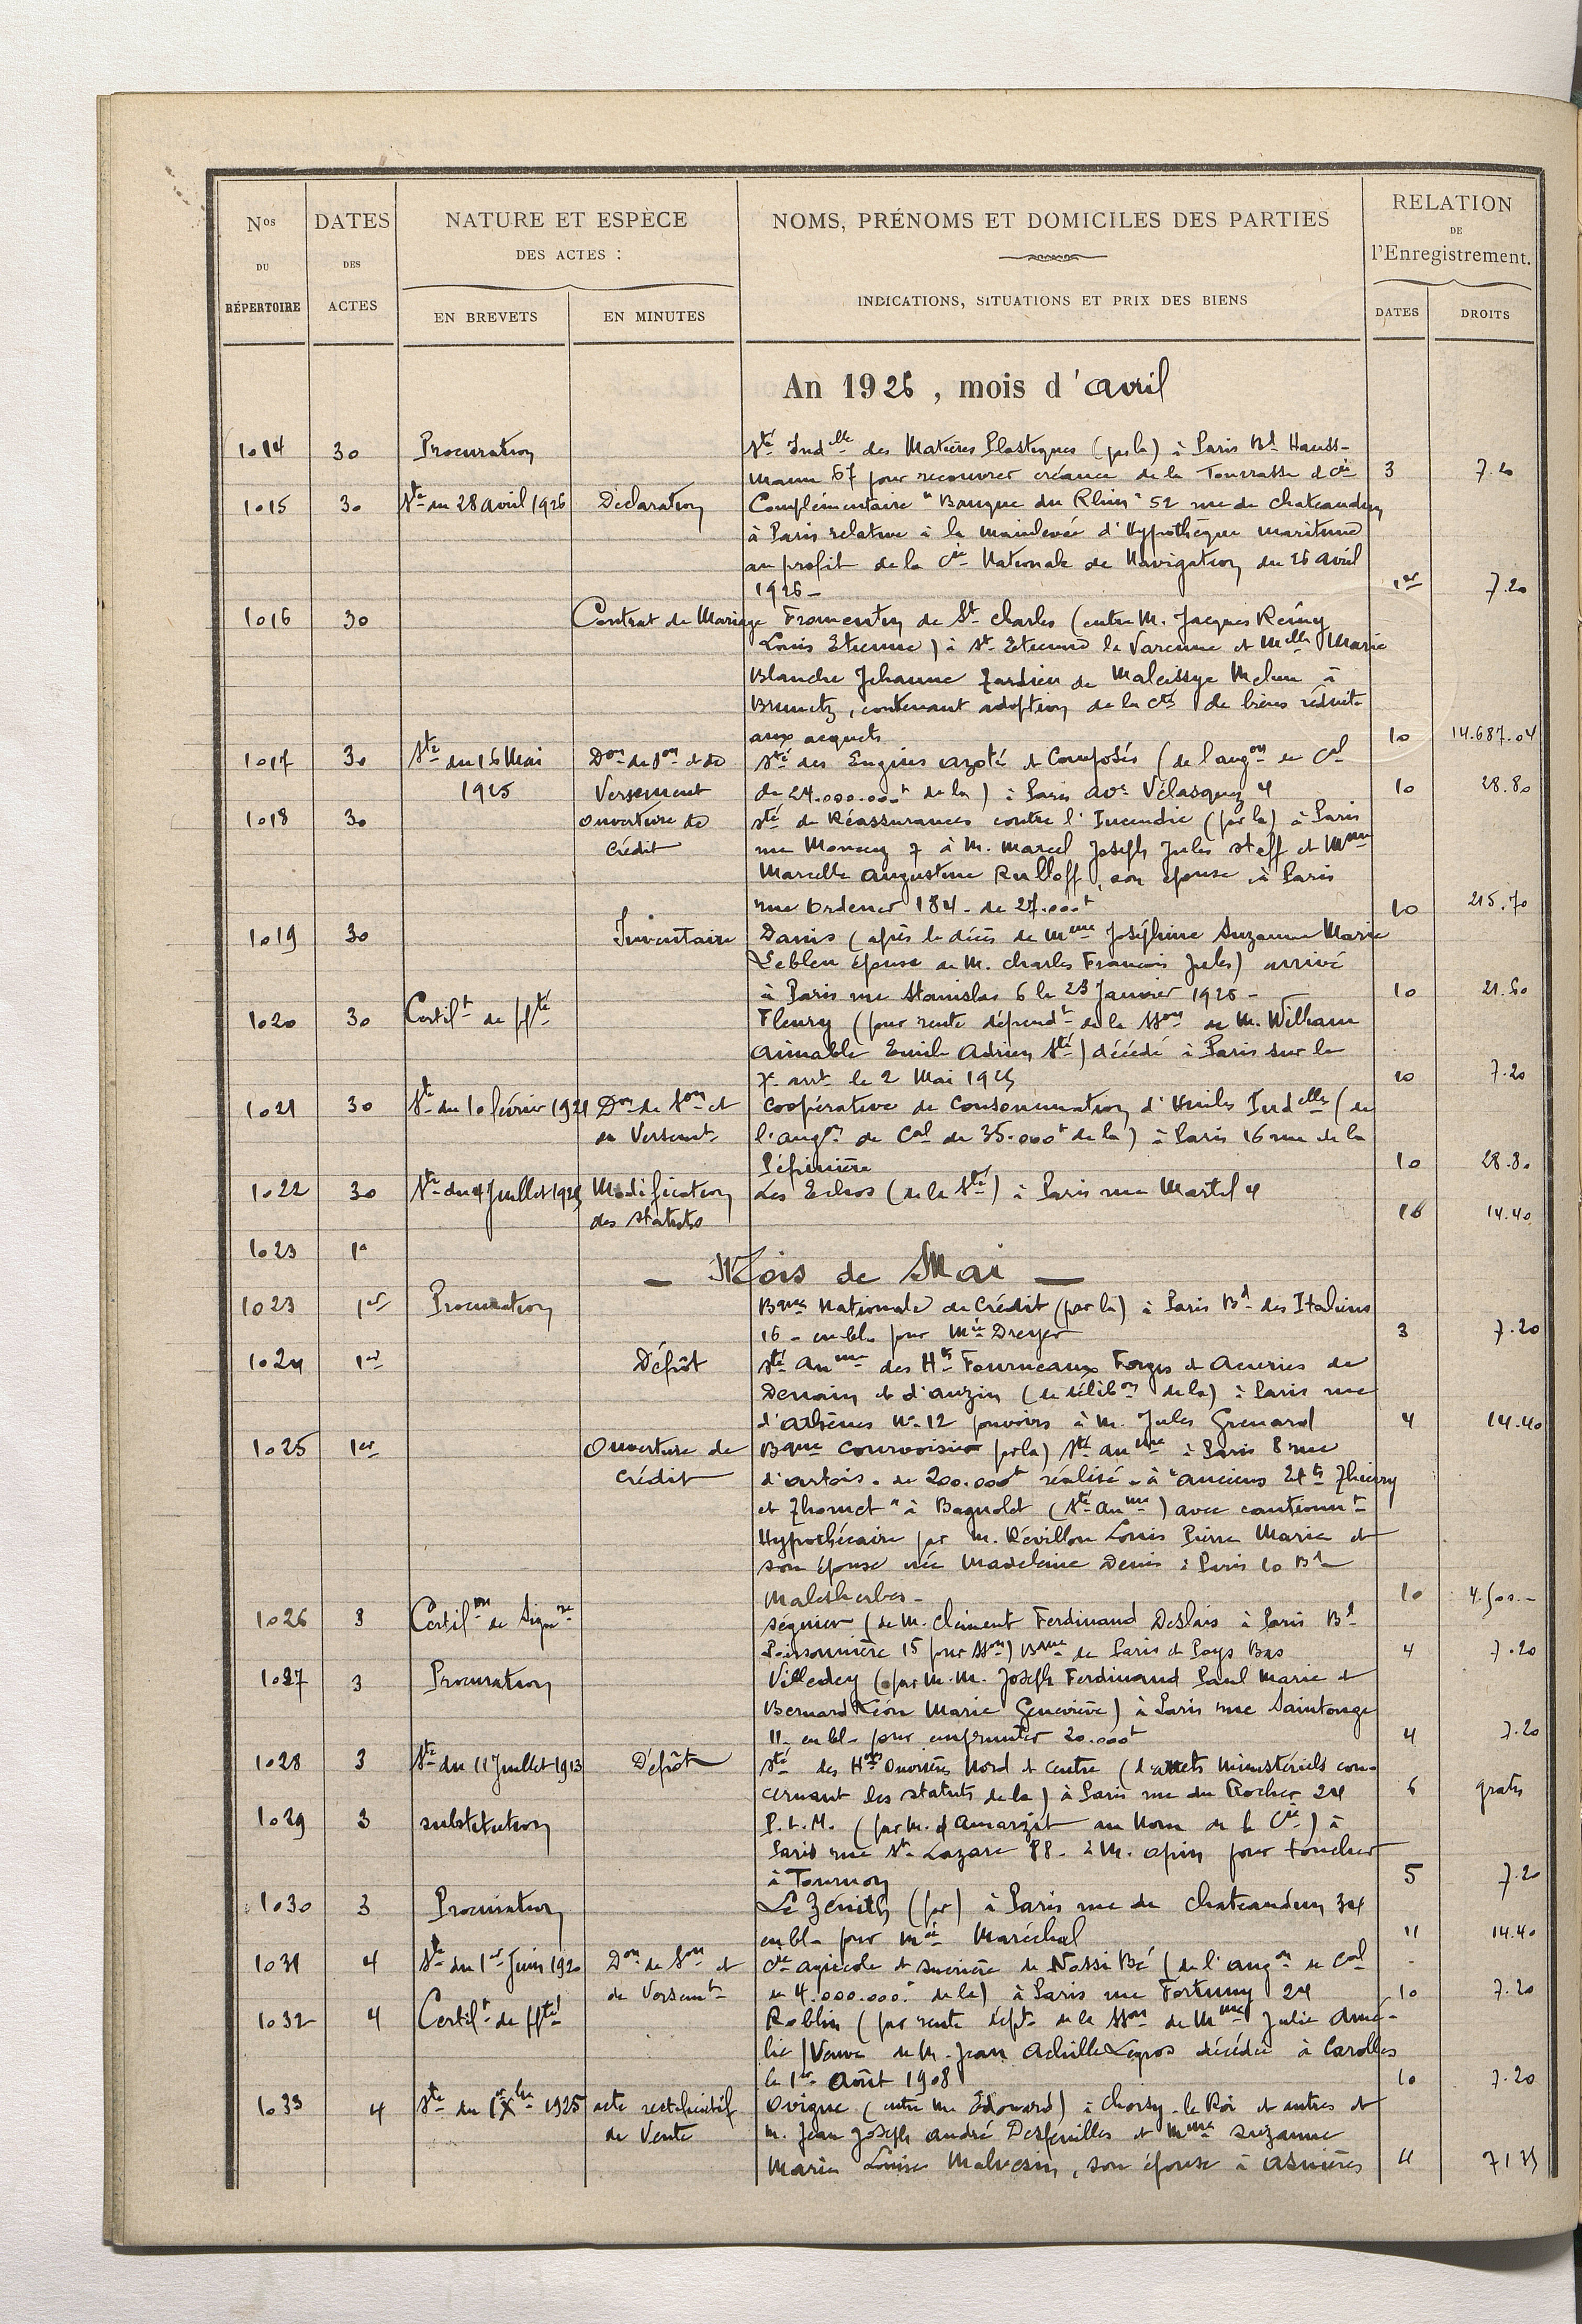 Nos DU RÉPERTOIRE
DATES DES ACTES
NATURE ET ESPÈCE
DES ACTES :
EN BREVETS
EN MINUTES
NOMS, PRÉNOMS ET DOMICILES DES PARTIES
INDICATIONS, SITUATIONS ET PRIX DES BIENS
RELATION
DE
l'Enregistrement.
DATES
DROITS
An 1926, mois d'avril
1014 30 Procuration Sté Indlle des Matières Plastiques (par la) à Paris Bd Hauss-
mann 67 pour recouvrer créance de la Tourrasse & Cie 3 7.20
1015 30 Ste du 28 avril 1926 Déclaration Complémentaire "Banque du Rhin" 52 rue de Chateaudun
à Paris relative à la mainlevée d'Hypothèque maritime
au profit de la Cie Nationale de Navigation du 26 avril
1926 - 1er 7.20
1016 30 Contrat de Mariage Fromentin de St Charles (entre M. Jacques Rémy
Louis Etienne) à St Etienne la Varenne et Melle Marie
Blanche Jehanne Tardieu de Maleissye Melun à
contenant adoption de la cté de biens réduite
aux acquets 10 14.687.04
1017 30 Ste du 16 Mai Don de Son et de Sté des Engrais azotés et Composés (de l'augon de Cal
1925 Versement de 24.000.000f de la) à Paris ave Vélasquez 4 10 28.80
1018 30 Ouverture de Sté de Réassurances contre l'Incendie (par la) à Paris
Crédit rue Moncey 7 à M. Marcel Joseph Jules Steff et Mme
Marcelle Augustine Rulloff, son épouse à Paris
rue Ordener 184 - de 27.000f 10 215.70
1019 30 Inventaire Danis (après le décès de Mme Joséphine Suzanne Marie
Leblen épouse de M. Charles François Jules) arrivé
à Paris rue Stanislas 6 le 23 Janvier 1926 - 10 21.60
1020 30 Certift de ppté Fleury (pour rente dépendt de la Sson de M. William
Aimable Emile Adrien Sté) décédé à Paris sur le
7e arrt le 2 Mai 1925 10 7.20
1021 30 Ste du 10 février 1921 Don de Son et Coopérative de Consommation d'Huiles Indelles (de
de Versemt l'augon de Cal de 35.000f de la) à Paris 16 rue de la
Pépinière 10 28.80
1022 30 Ste du 4 Juillet 1925 Modification Les Echos (de la Sté) à Paris rue Martel 4
des Statuts 16 14.40
1023 1er
- Mois de Mai -
1023 1er Procuration Bque Nationale de Crédit (par la) à Paris Bd des Italiens
16 - en bl. pour Mie Dreyer 3 7.20
1024 1er Dépôt Sté Anme des Hts Fourneaux Forges et Aciéries de
Denain et d'Anzin (de délibon de la) à Paris rue
d'Athènes No 12 pouvoirs à M. Jules Grenard 4 14.40
1025 1er Ouverture de Bque Courvoisier (par la) Sté anme à Paris 8 rue
Crédit d'Artois - de 200.000f réalisé - à "Anciens Ets Thierry
et Thomet" à Bagnolet (Sté anme) avec cautionnt
Hypothécaire par M. Révillon Louis Pierre Marie et
son épouse née Madeleine Denis à Paris 10 Bd
Malesherbes - 10 4.500.-
1026 3 Certifon de Signre Séguier (de M. Clément Ferdinand Deslais à Paris Bd
Poissonnière 15 pour Sson) Bque de Paris et Pays Bas 4 7.20
1027 3 Procuration Villedey (par M.M. Joseph Ferdinand Paul Marie et
Bernard Léon Marie Geneviève) à Paris rue Saintonge
11 - en bl - pour emprunter 20.000f 4 7.20
1028 3 Ste du 11 Juillet 1913 Dépôt Sté des Hons Ouvrières Nord et Centre (d'arrêts ministériels con-
cernant les statuts de la) à Paris rue du Rocher 24 6 gratis
1029 3 substitution P.L.M. (par M. d'Amarzit au Nom de la Cie) à
Paris rue St Lazare 88 - à M. Apin pour toucher
à Tournon 5 7.20
1030 3 Procuration Le Zénith (par) à Paris rue de Chateaudun 34
en bl - pour Mie Maréchal 11 14.40
1031 4 Ste du 1er Juin 1920 Don de Son et Cie Agricole et sucrière de Nossi Bé (de l'augon de Cal
de Versemt de 4.000.000f de la) à Paris rue Fortuny 24 10 7.20
1032 4 Certift de ppté Roblin (par rente dépt de la Sson de Mme Julie Amé-
lie) Veuve de M. Jean Achille Legros décédée à Carolles
le 1er Août 1908 10 7.20
1033 4 Ste du 1er Xbre 1925 acte rectificatif Ovigne (entre M. Edouard) à Choisy-le-Roi et autres et
de Vente M. Jean Joseph André Desfeuilles et Mme Suzanne
Marie Louise Malvesin, son épouse à Asnières 11